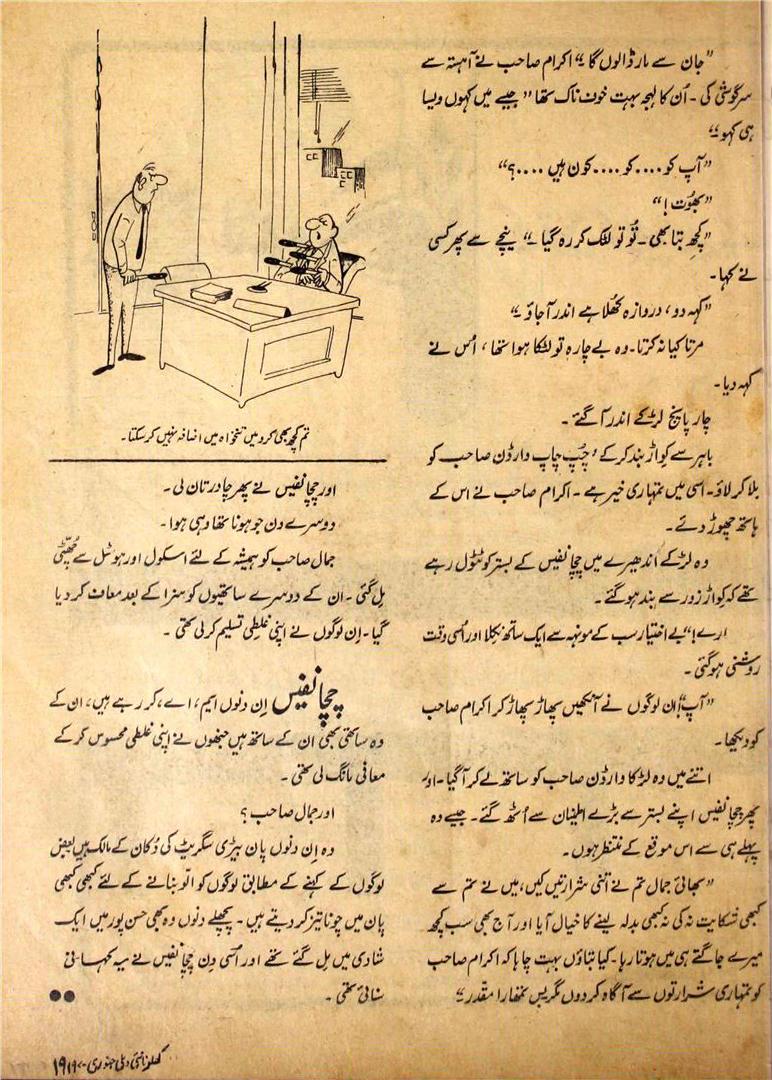 ”جان سے مار ڈالوں گا۔“ اکرام صاحب نے آہستہ سے
سرگوشی کی۔ اُن کا لہجہ بہت خوف ناک تھا ”جیسے میں کہوں ویسا
ہی کہو۔“
”آپ کو .... کو .... کون ہیں ....؟“
”بھُوت!“
”کچھ بتا بھی۔ تُو تو لٹک کر رہ گیا۔“ نیچے سے پھر کسی
نے کہا۔
”کہہ دو، دروازہ کھُلا ہے اندر آجاؤ۔“
مرتا کیا نہ کرتا۔ وہ بے چارہ تو لٹکا ہوا تھا، اُس نے
کہہ دیا۔
چار پانچ لڑکے اندر آگئے۔
باہر سے کواڑ بند کرکے، چُپ چاپ وارڈن صاحب کو
بلا کر لاؤ۔ اسی میں تمہاری خیر ہے۔ اکرام صاحب نے اس کے
ہاتھ چھوڑ دئے۔
وہ لڑکے اندھیرے میں چچا نفیس کے بستر کو ٹٹول رہے
تھے کہ کواڑ زور سے بند ہوگئے۔
ارے!“ بے اختیار سب کے مونہہ سے ایک ساتھ نکلا اور اُسی وقت
روشنی ہوگئی۔
”آپ“! اِن لوگوں نے آنکھیں پھاڑ پھاڑ کر اکرام صاحب
کو دیکھا۔
اتنے میں وہ لڑکا وارڈن صاحب کو ساتھ لے کر آگیا۔ اور
پھر چچا نفیس اپنے بستر سے بڑے اطمینان سے اُٹھ گئے۔ جیسے وہ
پہلے ہی سے اس موقع کے منتظر ہوں۔
”بھائی جمال تم نے اتنی شرارتیں کیں، میں نے تم سے
کبھی شکایت نہ کی نہ کبھی بدلہ لینے کا خیال آیا اور آج بھی سب کچھ
میرے جاگتے ہی میں ہوتا رہا۔ کیا بتاؤں بہت چاہا کہ اکرام صاحب
کو تمہاری شرارتوں سے آگاہ کردوں مگر بس تمھارا مقدر۔“
تم کچھ بھی کرو میں تنخواہ میں اضافہ نہیں کر سکتا۔
اور چچا نفیس نے پھر چادر تان لی۔
دوسرے دن جو ہونا تھا وہی ہوا۔
جمال صاحب کو ہمیشہ کے لئے اسکول اور ہوسٹل سے چھُٹّی
مِل گئی۔ ان کے دوسرے ساتھیوں کو سزا کے بعد معاف کر دیا
گیا۔ اِن لوگوں نے اپنی غلطی تسلیم کر لی تھی۔
چچا نفیس اِن دنوں ایم، اے، کر رہے ہیں، ان کے
وہ ساتھی بھی ان کے ساتھ ہیں جنھوں نے اپنی غلطی محسوس کر کے
معافی مانگ لی تھی۔
اور جمال صاحب؟
وہ اِن دنوں پان بیڑی سگریٹ کی دُکان کے مالک ہیں بعض
لوگوں کے کہنے کے مطابق لوگوں کو اُلّو بنانے کے لئے کبھی کبھی
پان میں چونا تیز کر دیتے ہیں۔ پچھلے دنوں وہ بھی حسن پور میں ایک
شادی میں مِل گئے تھے اور اُسی دِن چچا نفیس نے یہ کہانی
سنائی تھی۔
کھلونا نئی دہلی جنوری